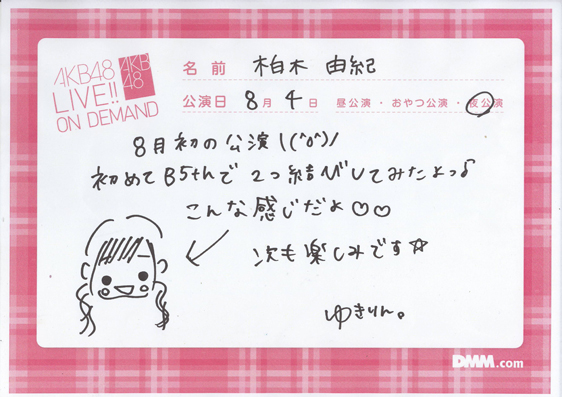 AKB48
LIVE!!
ON DEMAND
AKB
48
名前 柏木 由紀
公演日 8月 4日 昼公演・おやつ公演・夜公演
8月初の公演\(^o^)/
初めてB5thで2つ結びしてみたよっ♪
こんな感じだよ♡♡
次も楽しみです☆
ゆきりん。
DMM.com